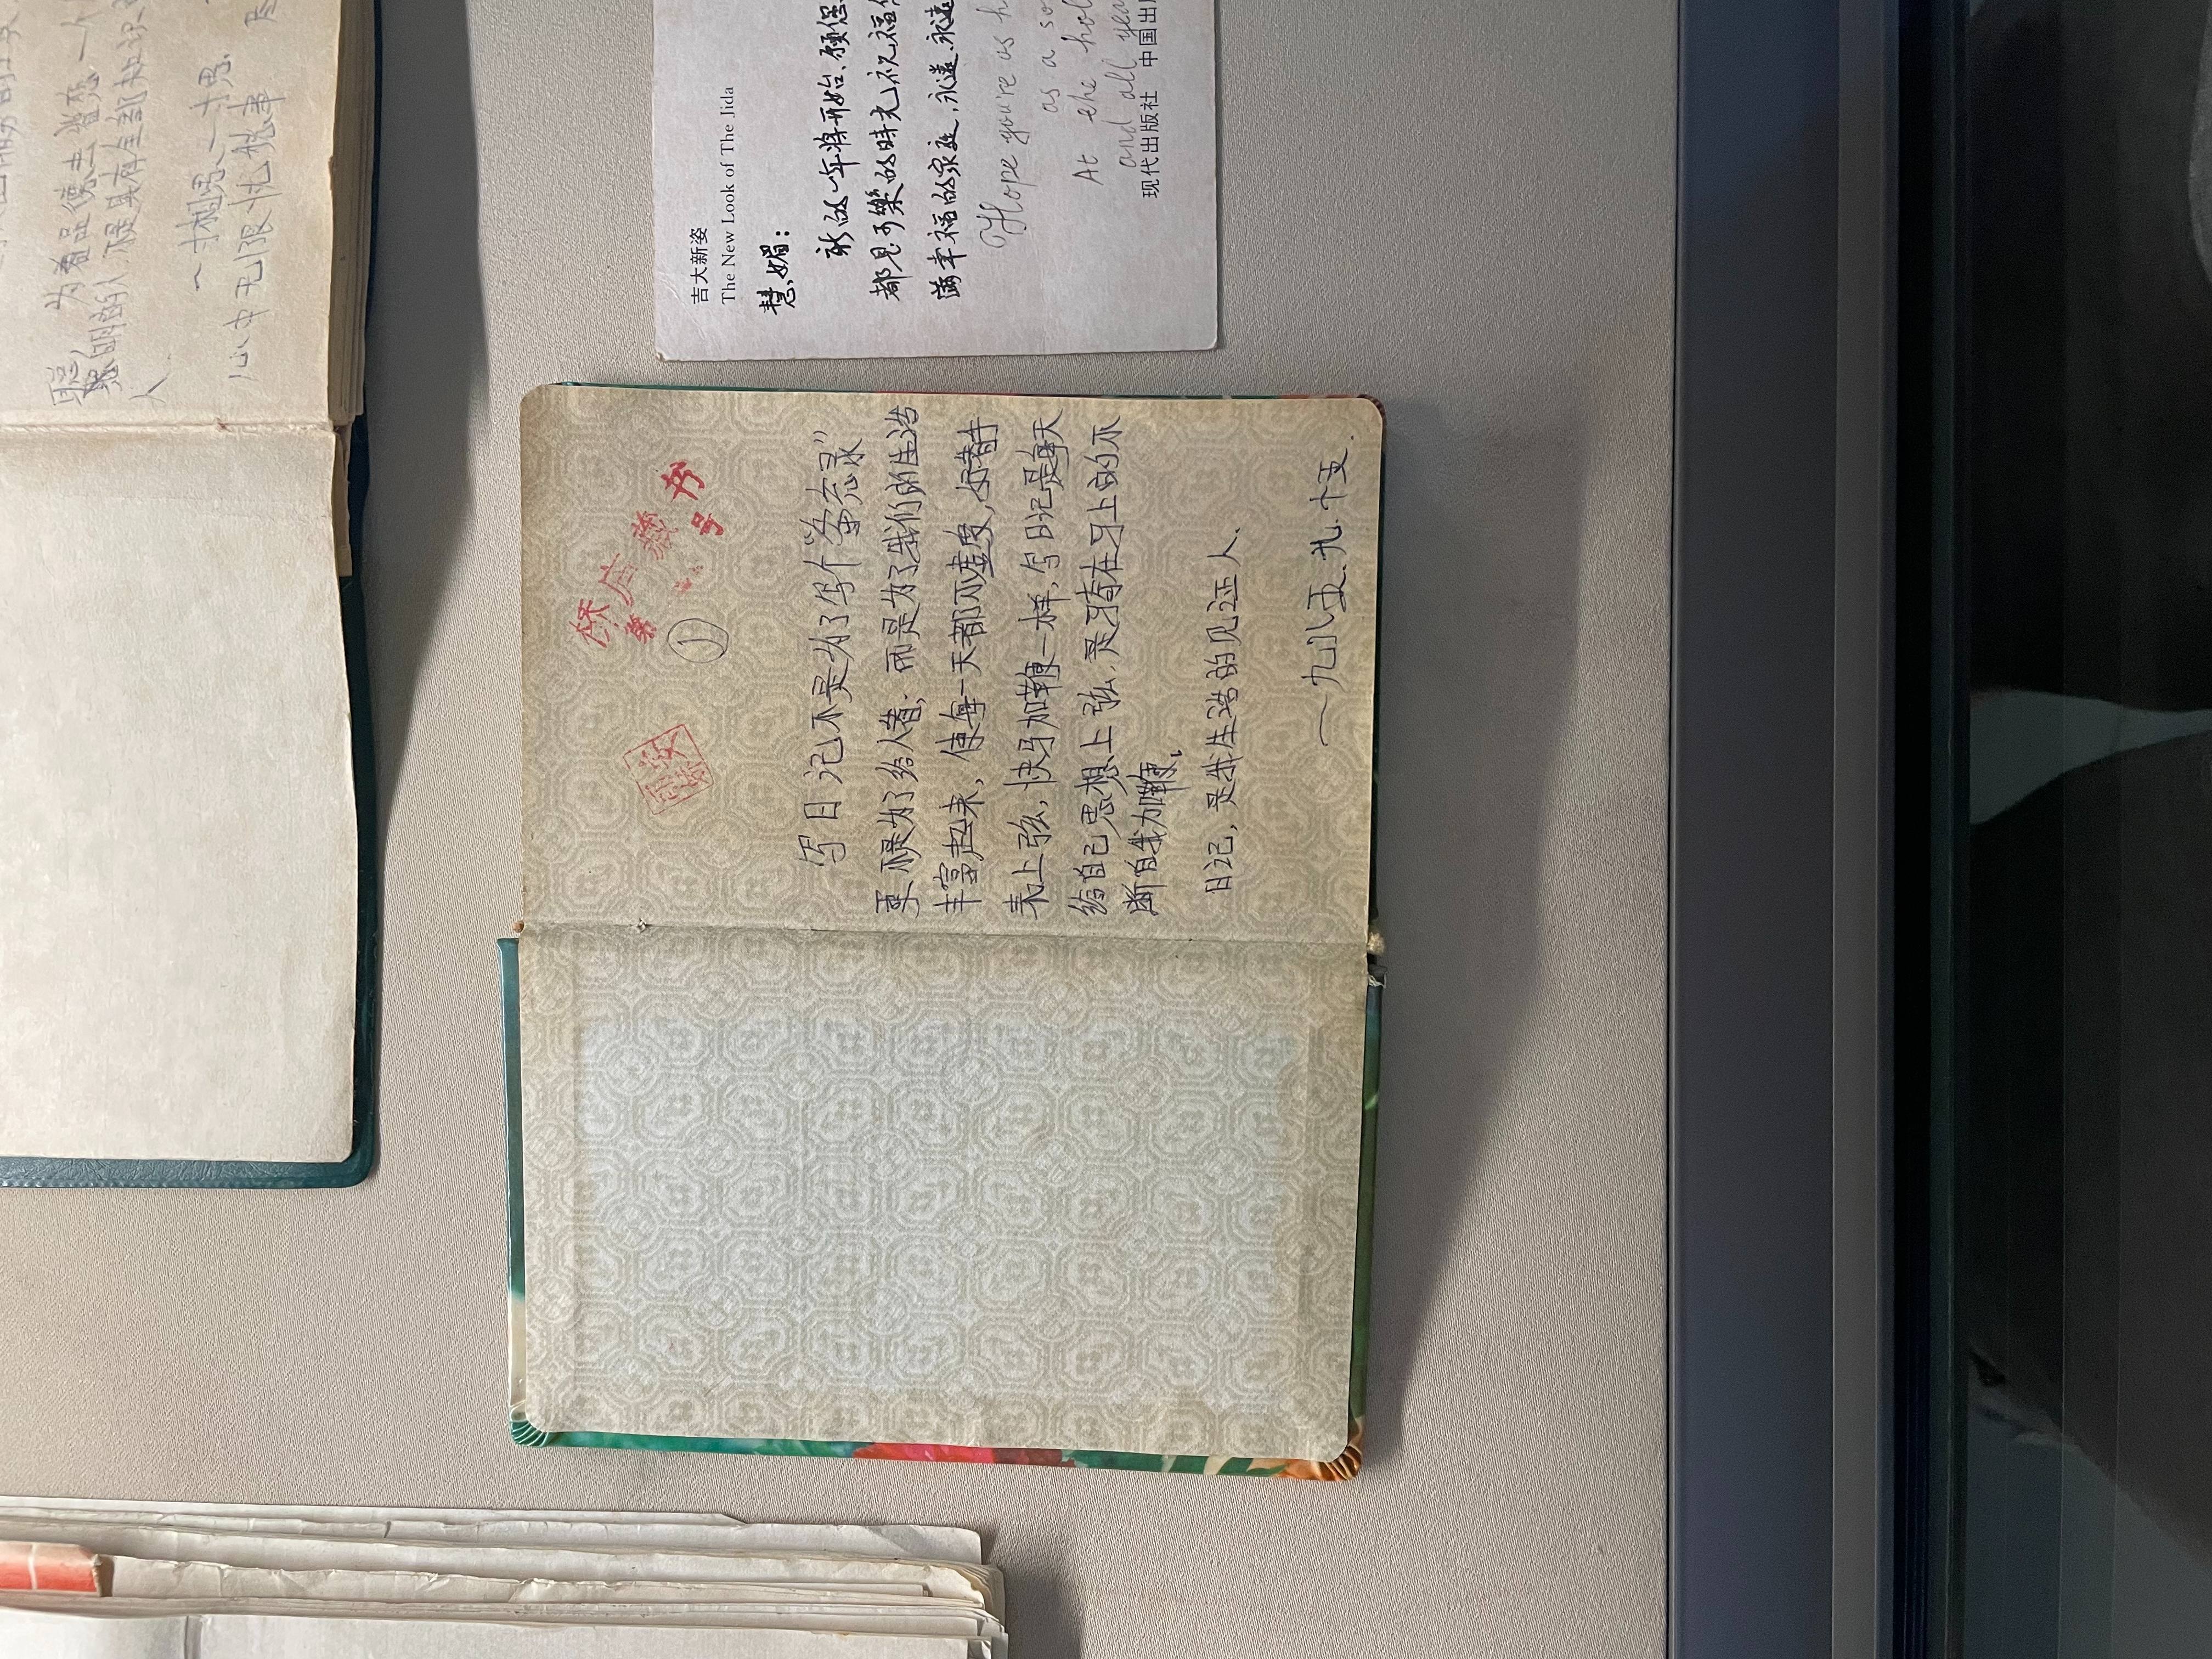 聪，为着品德去眷恋一个
聪明的人，不是具有全部知识
人
一寸相思，一寸思，
心中无限忧愁事
桥店藏书
第 号
①
写日记不是为了写个“备忘录”
更不是为了给人看；而是为了我们的生活
丰富起来，使每一天都不虚度，好着手
表上弦，快马加鞭一样，写日记是每天
给自己思想上弦，是骑在马上的不
断自我加鞭。
日记，是我生活的见证人。
一九八五.九.十五.
吉大新姿
The New Look of The Jida
慧媚：
新的一年将开始，愿您
都是可樂的時光，祝福您
滿幸福的家庭，永遠、永遠
Hope you're as h
as a so
At the hol
and all yea
现代出版社 中国出